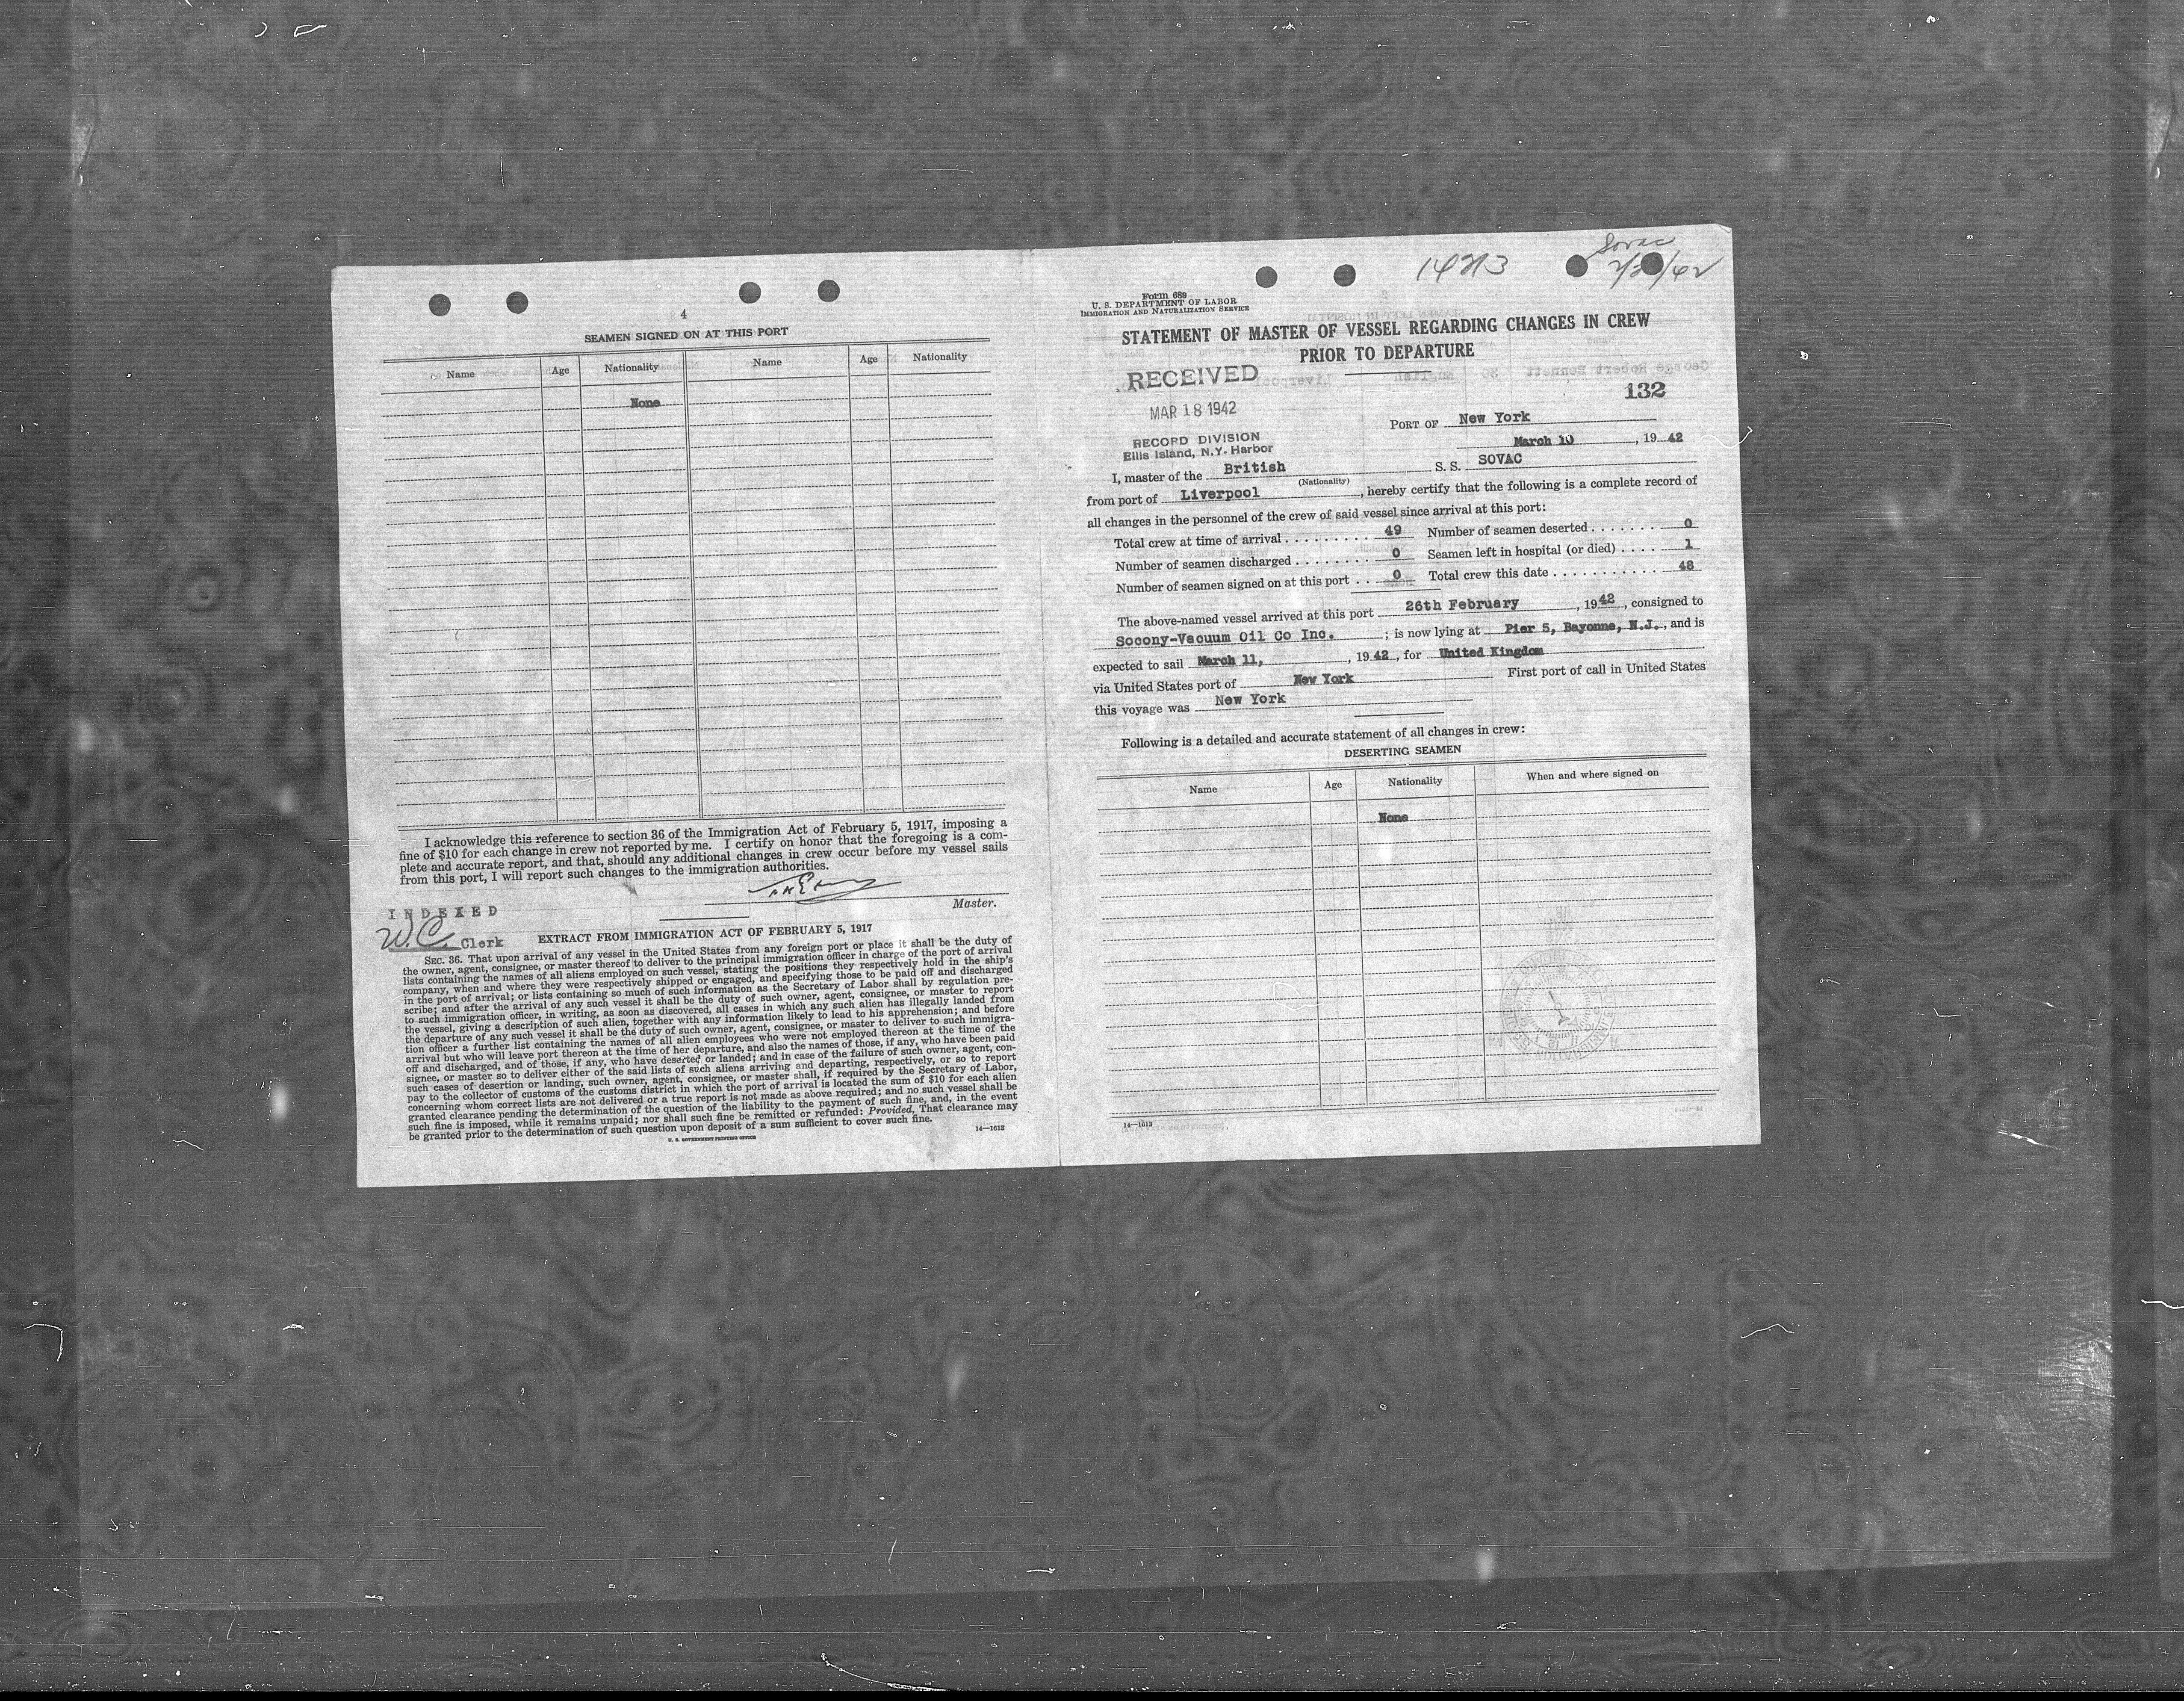 4
SEAMEN SIGNED ON AT THIS PORT
Name Age Nationality Name Age Nationality
None
I acknowledge this reference to section 36 of the Immigration Act of February 5, 1917, imposing a
fine of $10 for each change in crew not reported by me. I certify on honor that the foregoing is a com-
plete and accurate report, and that, should any additional changes in crew occur before my vessel sails
from this port, I will report such changes to the immigration authorities.
Master.
INDEXED
W.C. Clerk
EXTRACT FROM IMMIGRATION ACT OF FEBRUARY 5, 1917
SEC. 36. That upon arrival of any vessel in the United States from any foreign port or place it shall be the duty of
the owner, agent, consignee, or master thereof to deliver to the principal immigration officer in charge of the port of arrival
lists containing the names of all aliens employed on such vessel, stating the positions they respectively hold in the ship's
company, when and where they were respectively shipped or engaged, and specifying those to be paid off and discharged
in the port of arrival; or lists containing so much of such information as the Secretary of Labor shall by regulation pre-
scribe; and after the arrival of any such vessel it shall be the duty of such owner, agent, consignee, or master to report
to such immigration officer, in writing, as soon as discovered, all cases in which any such alien has illegally landed from
the vessel, giving a description of such alien, together with any information likely to lead to his apprehension; and before
the departure of any such vessel it shall be the duty of such owner, agent, consignee, or master to deliver to such immigra-
tion officer a further list containing the names of all alien employees who were not employed thereon at the time of the
arrival but who will leave port thereon at the time of her departure, and also the names of those, if any, who have been paid
off and discharged, and of those, if any, who have deserted or landed; and in case of the failure of such owner, agent, con-
signee, or master so to deliver either of the said lists of such aliens arriving and departing, respectively, or so to report
such cases of desertion or landing, such owner, agent, consignee, or master shall, if required by the Secretary of Labor,
pay to the collector of customs of the customs district in which the port of arrival is located the sum of $10 for each alien
concerning whom correct lists are not delivered or a true report is not made as above required; and no such vessel shall be
granted clearance pending the determination of the question of the liability to the payment of such fine, and, in the event
such fine is imposed, while it remains unpaid; nor shall such fine be remitted or refunded: Provided, That clearance may
be granted prior to the determination of such question upon deposit of a sum sufficient to cover such fine.
U. S. GOVERNMENT PRINTING OFFICE 14—1613
Sovac
Form 689
U. S. DEPARTMENT OF LABOR
IMMIGRATION AND NATURALIZATION SERVICE
STATEMENT OF MASTER OF VESSEL REGARDING CHANGES IN CREW
PRIOR TO DEPARTURE
RECEIVED
MAR 18 1942
RECORD DIVISION
Ellis Island, N.Y. Harbor
132
PORT OF New York
March 10, 1942
I, master of the British S. S. SOVAC
(Nationality)
from port of Liverpool, hereby certify that the following is a complete record of
all changes in the personnel of the crew of said vessel since arrival at this port:
Total crew at time of arrival . . . . . . . . . 49 Number of seamen deserted . . . . . . . 0
Number of seamen discharged . . . . . . . . 0 Seamen left in hospital (or died) . . . . 1
Number of seamen signed on at this port . . 0 Total crew this date . . . . . . . . . . . 48
The above-named vessel arrived at this port 26th February, 1942, consigned to
Socony-Vacuum Oil Co Inc. ; is now lying at Pier 5, Bayonne, N.J., and is
expected to sail March 11, , 1942, for United Kingdom
via United States port of New York First port of call in United States
this voyage was New York
Following is a detailed and accurate statement of all changes in crew:
DESERTING SEAMEN
Name Age Nationality When and where signed on
None
14—1613